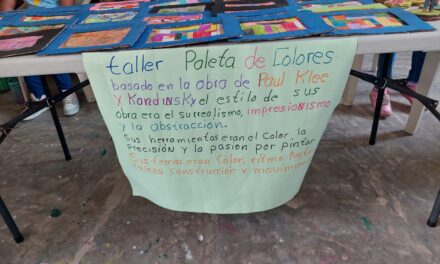 taller Paleta de Colores
basado en la obra de Paul Klee
Y Kandinsky el estilo de sus
obra era el surrealismo, impresionismo
y la abstracción.
Sus herramientas eran el Color, la
Precisión y la pasión por pintar
Sus temas eran Color, ritmo Natu
raleza construcción x movimien